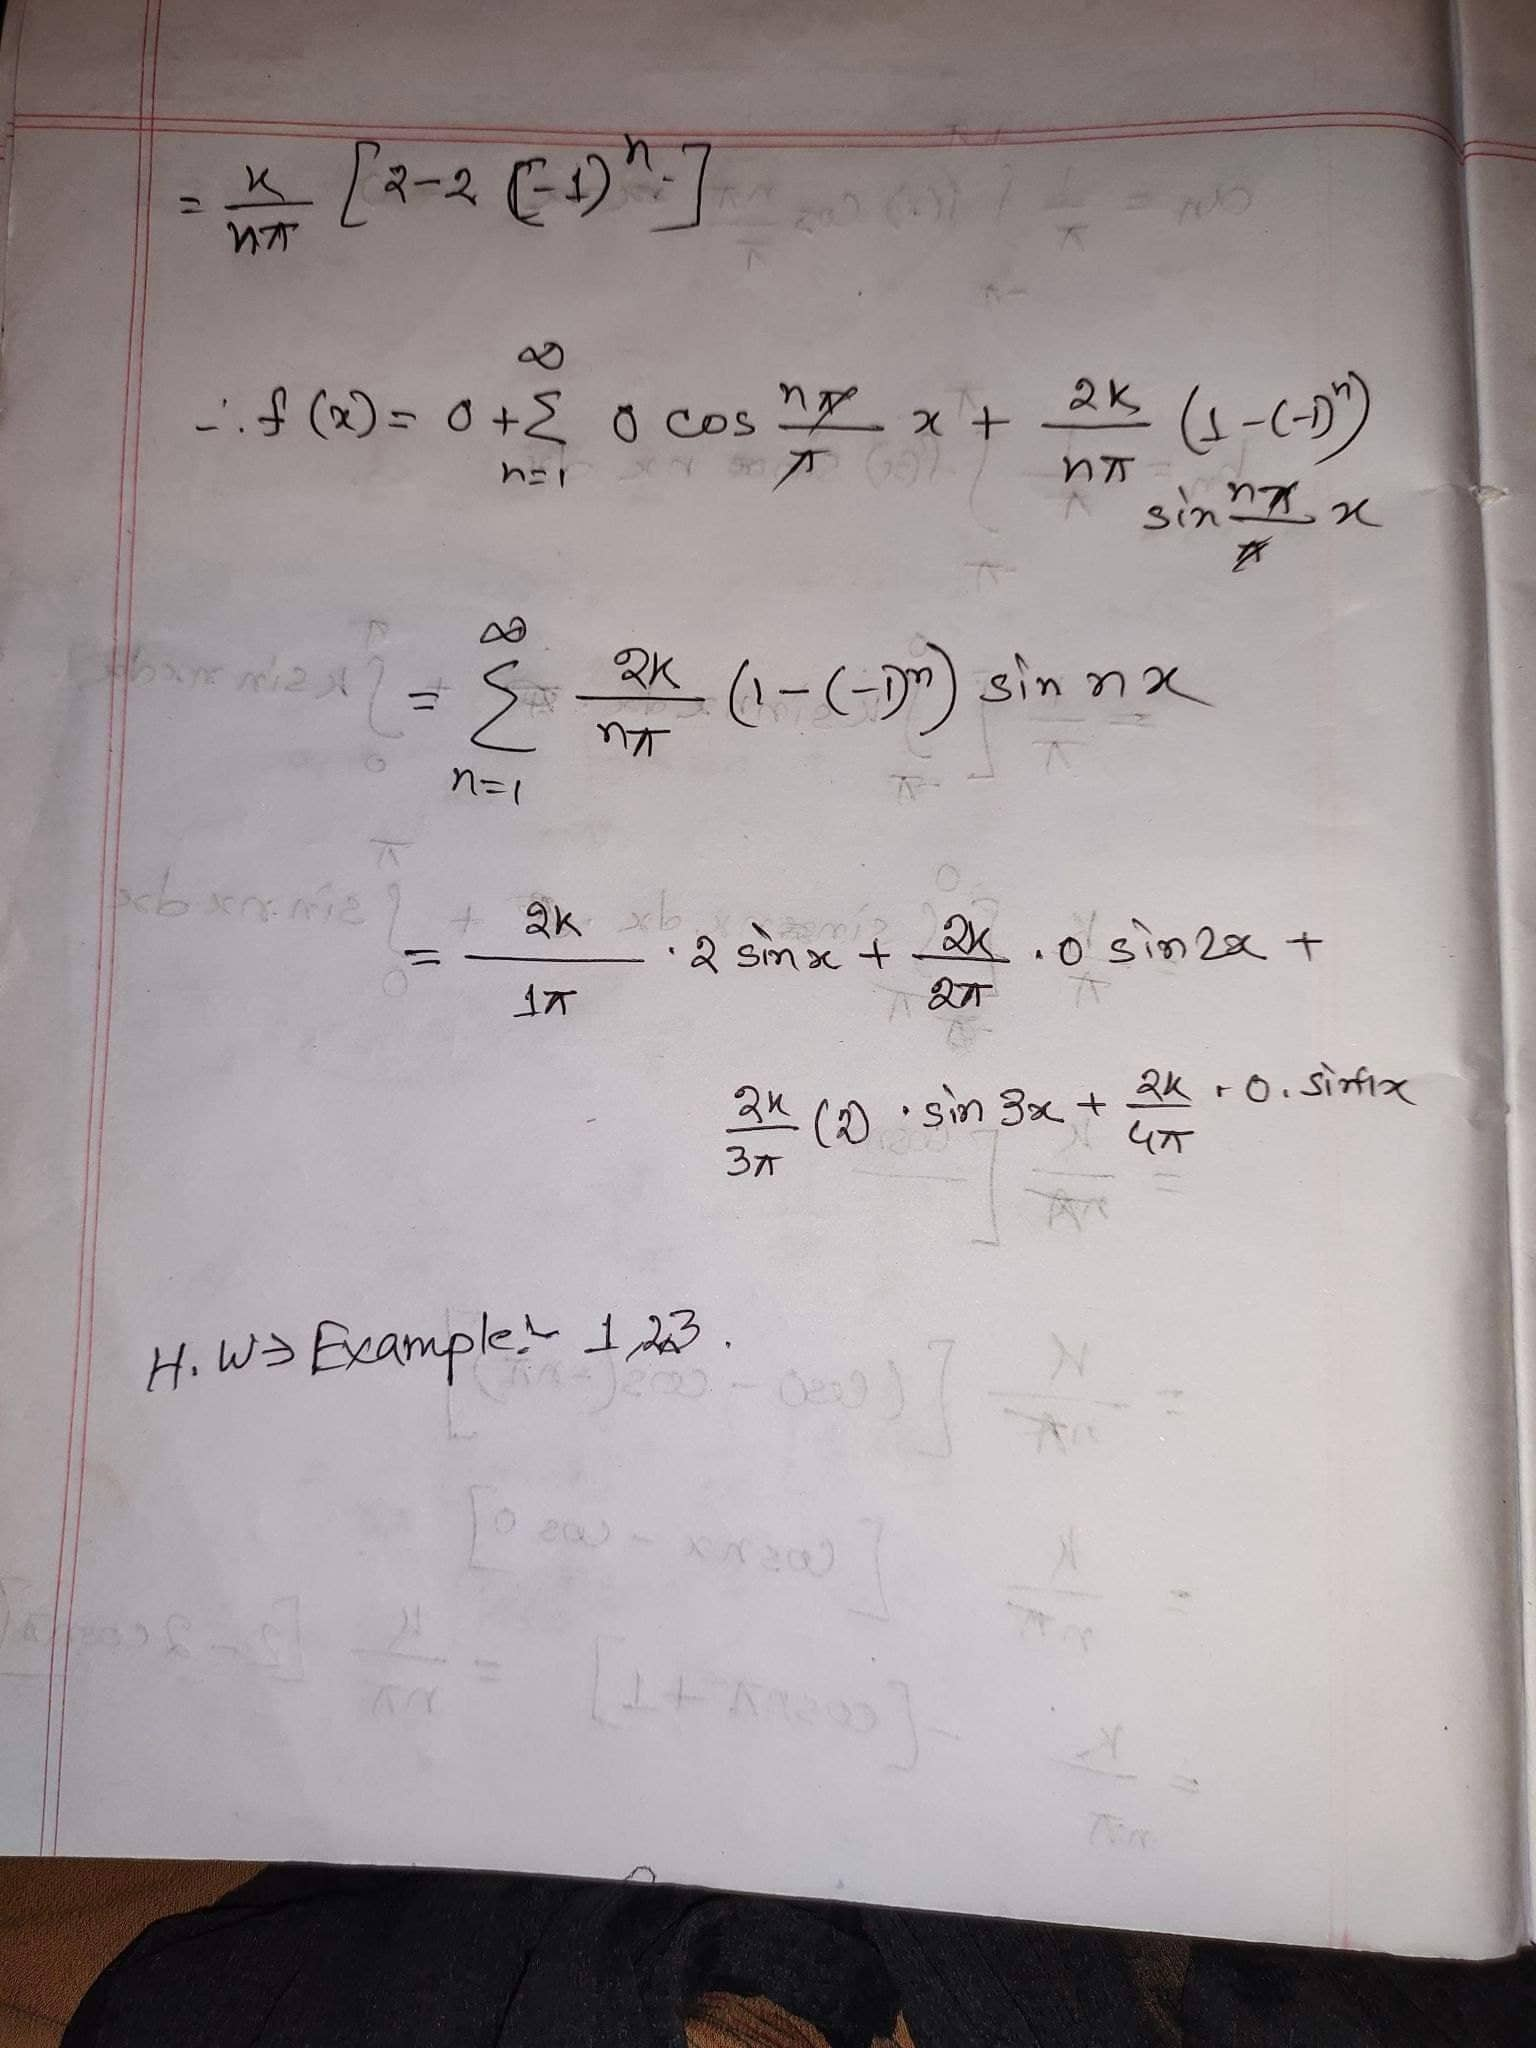 = k/nπ [2-2 (-1)ⁿ]
∴ f(x) = 0 + ∞Σn=1 0 cos nπ/π x + 2k/nπ (1-(-1)ⁿ)
sin nπ/π x
= ∞Σn=1 2k/nπ (1-(-1)ⁿ) sin nx
= 2k/1π · 2 sinx + 2k/2π · 0 sin2x +
2k/3π (2) · sin 3x + 2k/4π · 0 · sin4x
H.W → Example:- 1,2,3.